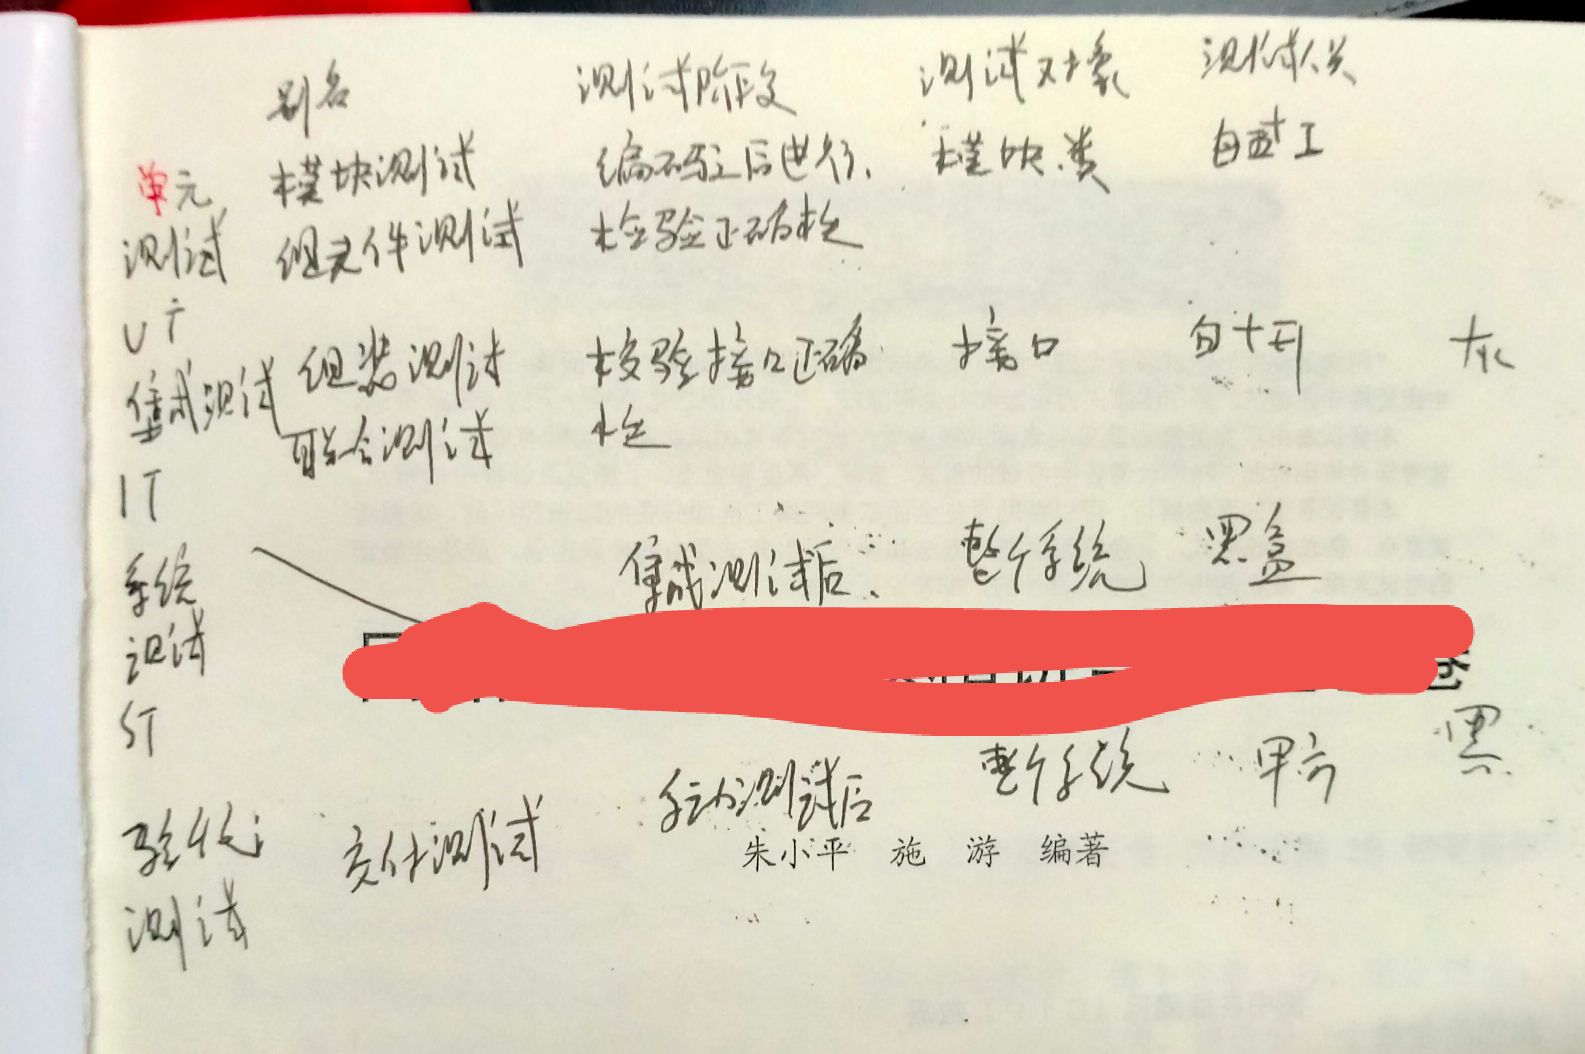 别名 测试阶段 测试对象 测试人员
单元 模块测试 编码之后进行、 模块、类 白盒+
测试 组件测试 检验正确性
UT
集成测试 组装测试 校验接口正确 接口 白+ 灰
联合测试 性
IT
系统 集成测试后、 整个系统 黑盒
测试
ST
整个系统 甲方 黑
验收 交付测试 系统测试后
朱小平 施 游 编著
测试